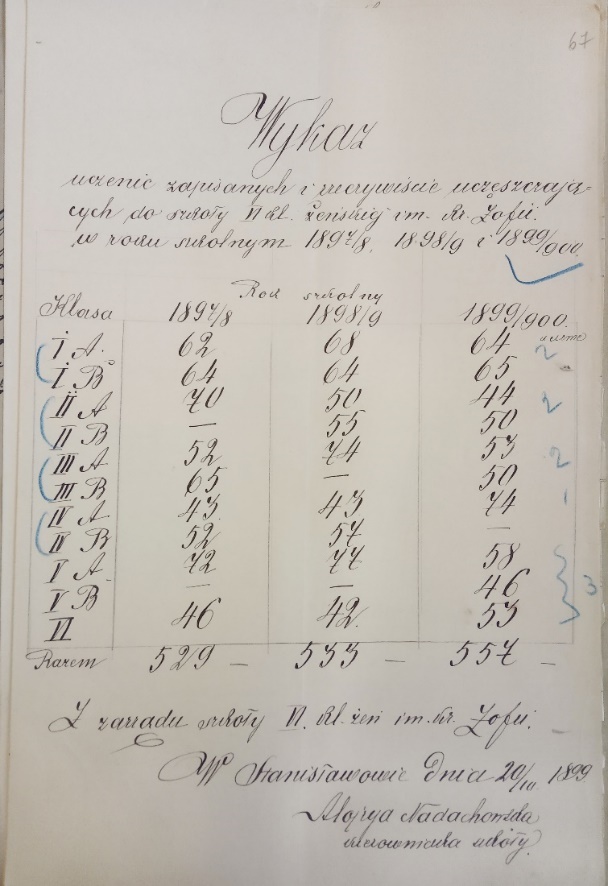 67
Wykaz
uczenic zapisanych i rzeczywiście uczęszczają-
cych do szkoły VI kl. Żeńskiej im. Kr. Zofii.
w roku szkolnym 1897/8, 1898/9 i 1899/900.
Rok szkolny
Klasa 1897/8 1898/9 1899/900.
I A. 62 68 64 2
I B 64 64 65
II A 70 50 44 2
II B — 55 50
III A 52 74 53 2
III B 65 — 50
IV A 43 43 74 1
IV B 52 57 —
V A 72 77 58
V B — — 46 3
VI 46 42. 53
Razem 529 — 533 — 557 —
Z zarządu szkoły VI. kl. żeń im. Kr. Zofii.
W Stanisławowie dnia 20/10 1899
Alojza Nadachowska
kierowniczka szkoły.